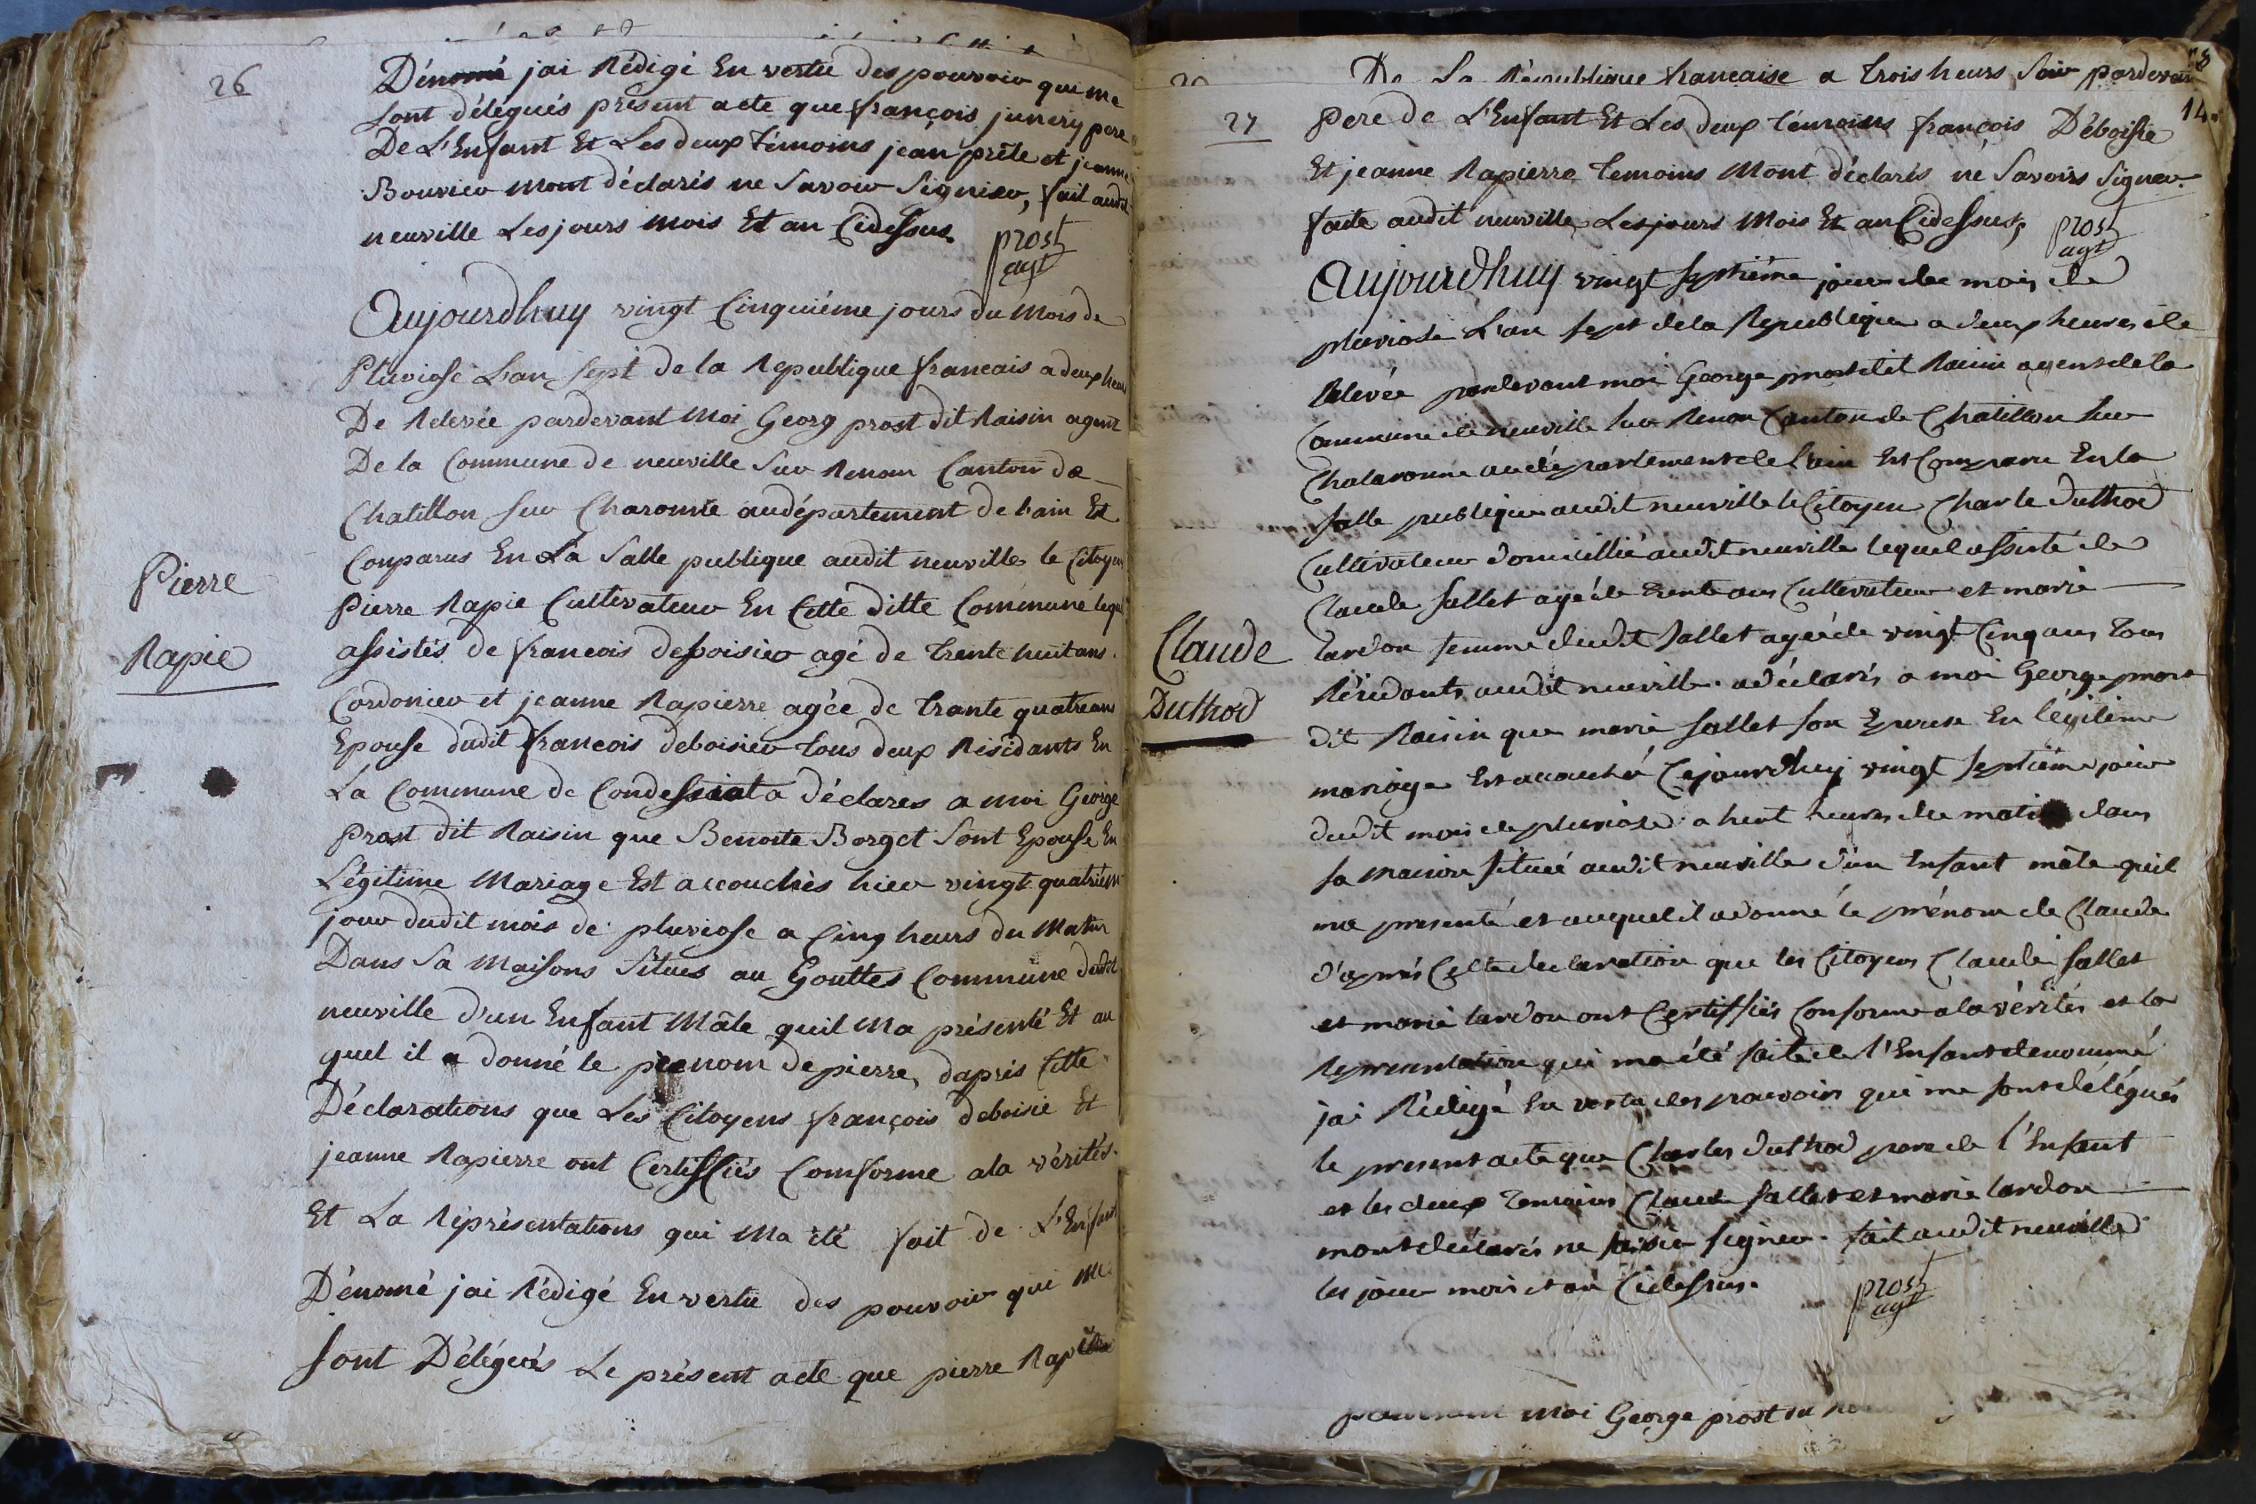 26
Dénomé jai Rédigé En vertu des pouvoir qui me
sont délégués présent acte que françois junery pere
De L'Enfant Et Les deux témoins jean prêle et jeanne
Bouvier Mont déclarés ne Savoir Signier, fait audit
neuville Les jours mois Et an Cidessus.
prost
agt
Aujourdhuy vingt Cinquiéme jours du Mois de
Pluviose L'an Sept de la Republique francais a deux heur
De Relevée pardevant Moi Georg prost dit Raisin agent
De la Commune de neuville Sur Renom Canton de
Chatillon sur Charonne audépartement de l'ain Est
Comparus En La Salle publique audit neuville le Citoyen
Pierre
Rapie
Pierre Rapie Cultivateur En Cette ditte Commune lequel
assistés de francois deboisier agé de Trente huit ans
Cordonier et jeanne Rapierre agée de trante quatre ans
Epouse dudit francois deboisier tous deux Residants En
La Commune de Condessiat a déclares a moi George
Prost dit Raisin que Benoite Borget Sont Epouse En
Légitime Mariage Est accouchés hier vingt quatriém
jour dudit mois de pluviose a Cinq heurs du Matin
Dans Sa Maisons Situes au Gouttes Commune dudit
neuville d'un Enfant Mâle quil Ma présenté Et au
quel il a donné le prenom de pierre, daprés Cette
Déclarations que Les Citoyens françois deboisie Et
jeanne Rapierre ont Certiffiés Comforme ala vérités.
Et La Réprésentations qui Ma été fait de L'Enfant
Dénomé jai Rédigé En vertu des pouvoir qui me
sont Délégués Le présent acte que pierre Rapie
De La République francaise a trois heurs Soir pardevan
14
27
Pere de L'Enfant Et Les deux témoins françois Déboisie
Et jeanne Rapierre temoins Mont déclarés né Savoirs Signer.
faite audit neuville Les jours Mois Et an Cidessus,
prost
agt
Aujourdhuy vingt septiéme jour du mois de
pluviose L'an sept de la Republique a deux heures de
Relevée pardevant moi George prost dit Raisin agent de la
Commune de neuville sur Renon Canton de Chatillon sur
Chalaronne au département de l'ain Est Comparu En la
salle publique audit neuville le Citoyen Charle Duthod
Cultivateur domicillié audit neuville lequel assisté de
Claude
Duthod
Claude sallet agé de trente ans Cultivateur et marie
lardon femme dudit sallet agée de vingt Cinq ans tous
Résidants audit neuville. a déclarés a moi George prost
dit Raisin que marie sallet son Epouse En légitime
mariage Est accouché Cejourdhuy vingt septiéme jour
dudit mois de pluviose a huit heures du matin dans
sa maison située audit neuville d'un Enfant mâle quil
ma presenté et auquel il a donné le prénom de Claude
d'aprés Cette declaration que les Citoyens Claude sallet
et marie lardon ont Certiffiés Conforme ala vérités et la
Representation qui ma été faite de l'Enfant denommé
jai Rédigé En vertu des pouvoirs qui me sont délégués
le present acte que Charles Duthod pere de l'Enfant
et les deux temoins Claude sallet et marie lardon
mont déclarés ne savoir signer. fait audit neuville
les jour mois et an Cidessus.
prost
agt
moi George prost